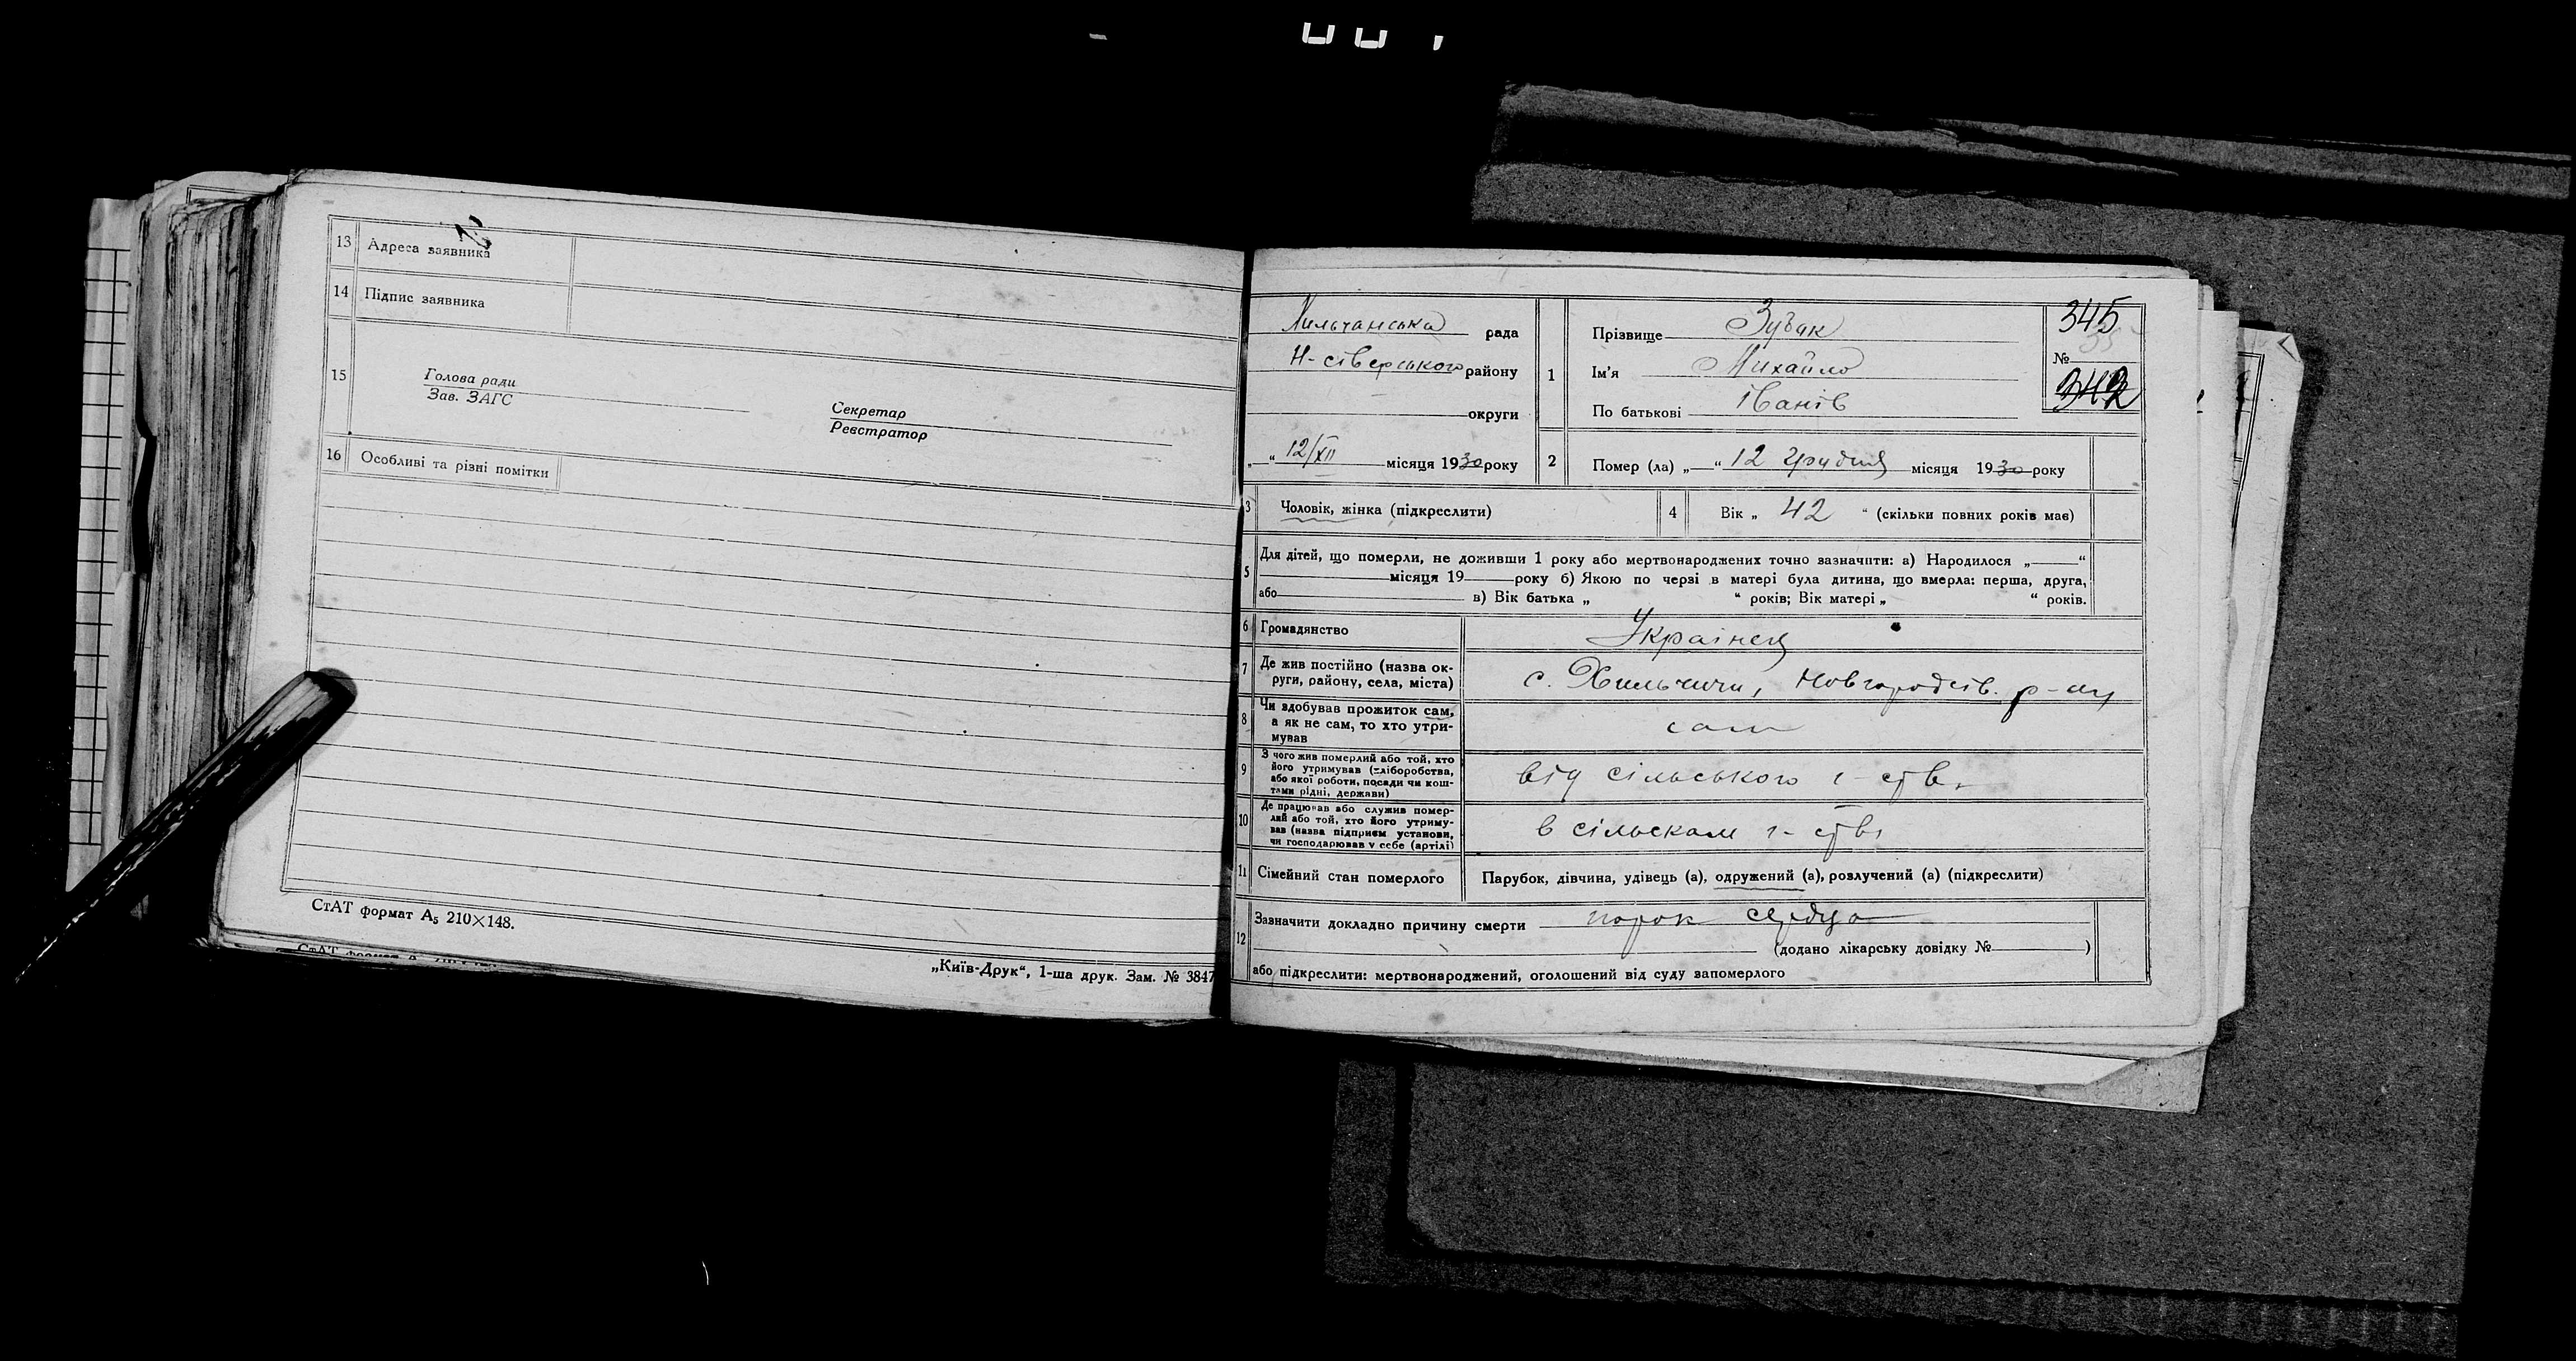 13 Адреса заявника
14 Підпис заявника
15 Голова ради
Зав. ЗАГС
Секретар
Реєстратор
16 Особливі та різні помітки
СтАТ формат А5 210×148.
„Київ-Друк“, 1-ша друк. Зам. № 3847
рада
Н-сіверського району
округи
„ “ 12/XII місяця 1930 року
1 Прізвище Зубак
Ім'я Михайло
По батькові Іванів
345
№
342
2 Помер (ла) „ “ 12 грудня місяця 1930 року
3 Чоловік, жінка (підкреслити)
4 Вік „ 42 “ (скільки повних років має)
5 Для дітей, що померли, не доживши 1 року або мертвонароджених точно зазначити: а) Народилося „ “
місяця 19 року б) Якою по черзі в матері була дитина, що вмерла: перша, друга,
або в) Вік батька „ “ років; Вік матері „ “ років.
6 Громадянство Українец
7 Де жив постійно (назва ок-
руги, району, села, міста) с. Хильчичи, Новгородсів. р-ну
8 Чи здобував прожиток сам,
а як не сам, то хто утри-
мував сам
9 З чого жив померлий або той, хто
його утримував (хліборобства,
або якої роботи, посади чи кош-
тами рідні, держави) від сільського г-ств.
10 Де працював або служив помер-
лий або той, хто його утриму-
вав (назва підприєм установи,
чи господарював у себе (артілі) в сільском г-стві
11 Сімейний стан померлого Парубок, дівчина, удівець (а), одружений (а), розлучений (а) (підкреслити)
12 Зазначити докладно причину смерти порок сердца
(додано лікарську довідку № )
або підкреслити: мертвонароджений, оголошений від суду запомерлого